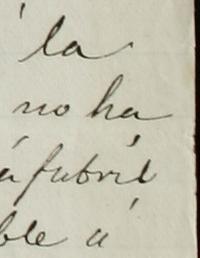 la
no ha
á fubril
ble á